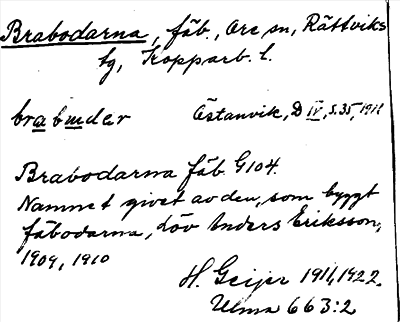 Brabodarna, fäb., Ore sn, Rättviks
tg, Kopparb. l.
brabωdar Östanvik, D IV, s. 35, 1911
Brabodarna fäb. G104.
Namnet givet av den, som byggt
fäbodarna, Löv Anders Eriksson,
1909, 1910
H. Geijer 1911, 1922.
Ulma 663:2